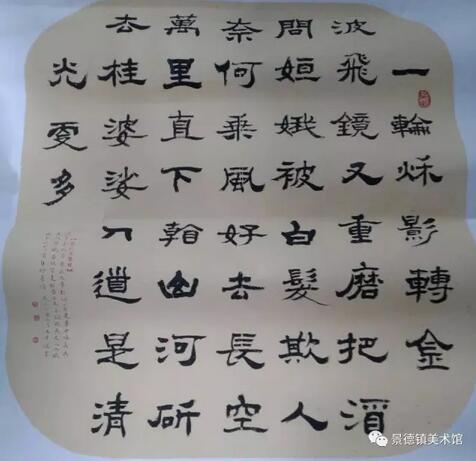 一輪秌影轉金
波飛鏡又重磨把酒
問姮娥被白髮欺人
奈何乘風好去長空
萬里直下看山河斫
去桂婆娑人道是清
光更多
景德镇美术馆